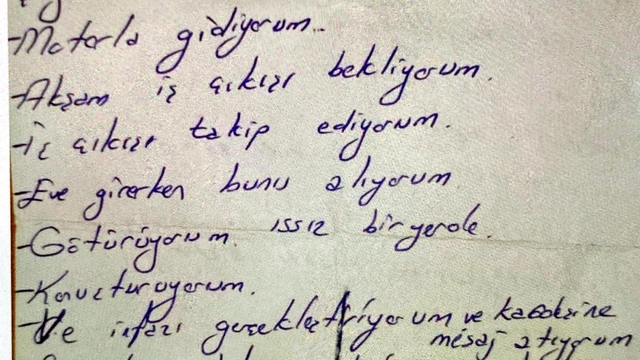 -Motorla gidiyorum..
-Akşam iş çıkışı bekliyorum.
-İş çıkışı takip ediyorum.
-Eve girerken bunu alıyorum
-Götürüyorum. ıssız bir yerde.
-Konuşturuyorum.
-Ve infazı gerçekleştiriyorum ve kafadaksine
mesaj atıyorum